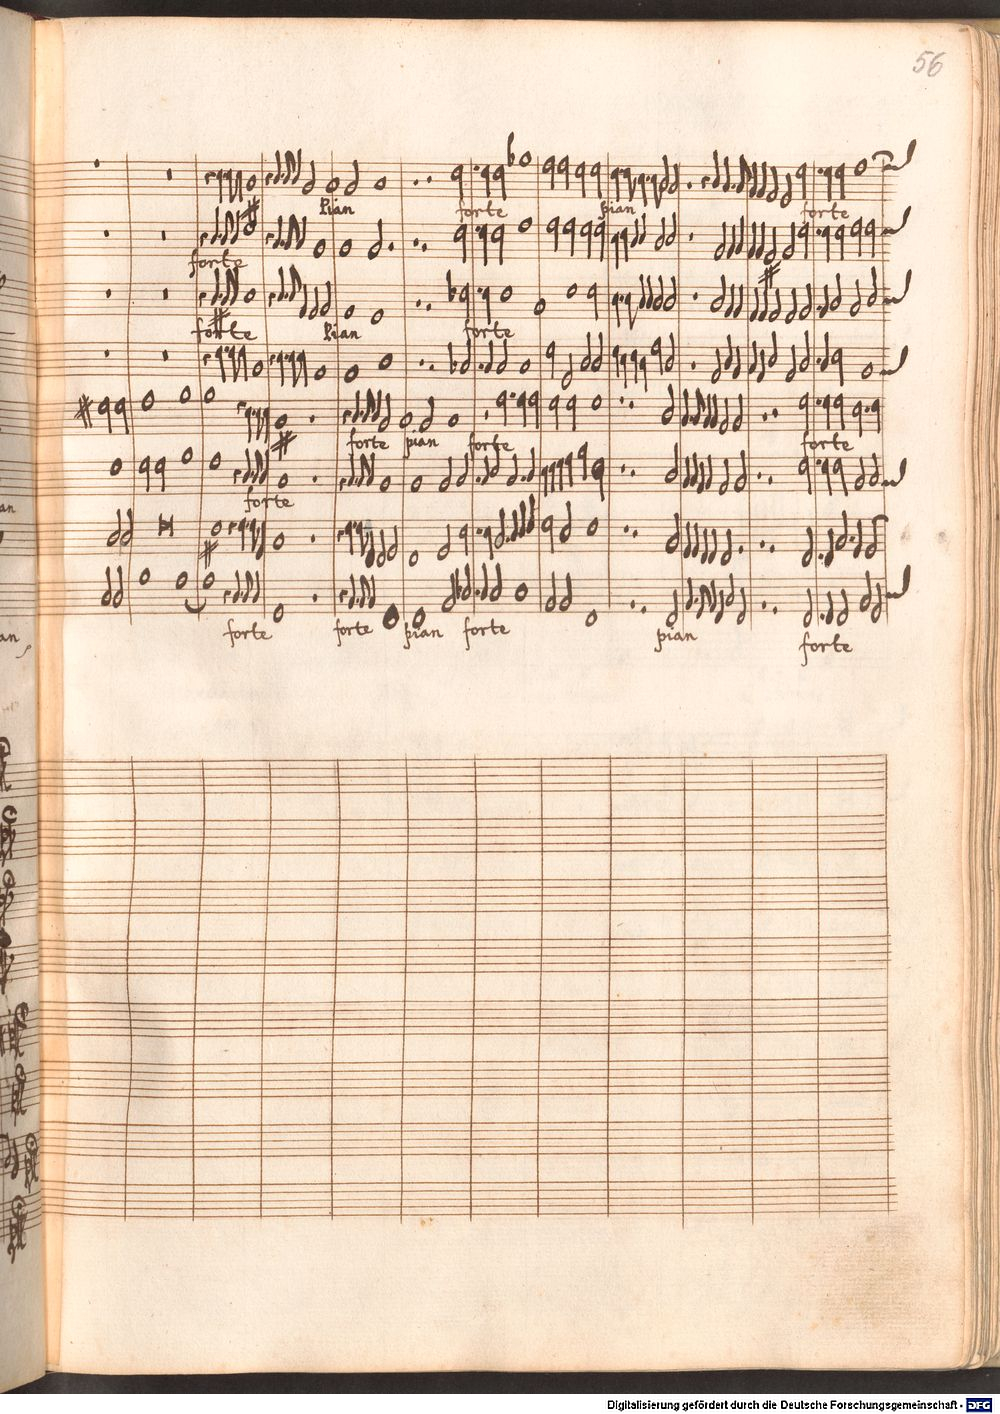 56
Pian forte pian forte
forte
forte Pian forte
forte pian forte forte
forte
forte forte pian forte pian forte
an
an
Digitalisierung gefördert durch die Deutsche Forschungsgemeinschaft - DFG